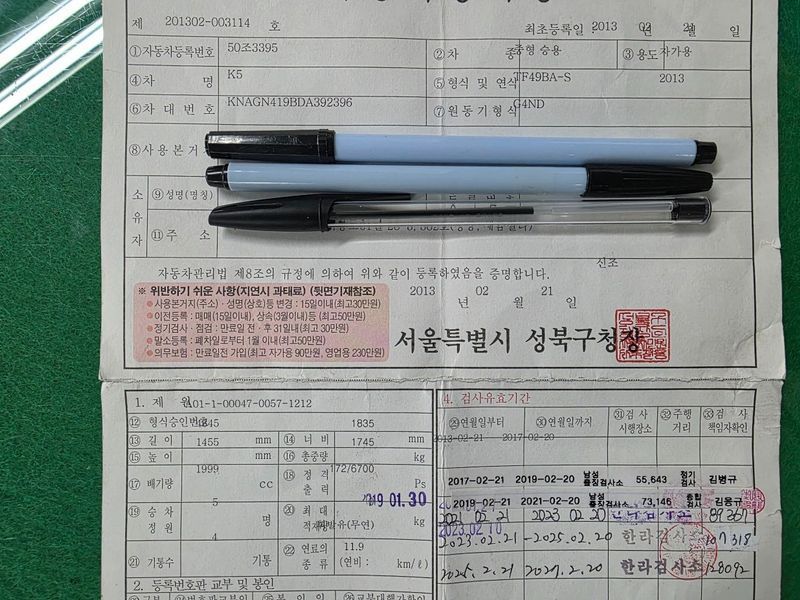 제 201302-003114 호
최초등록일 2013 년 02 월 21 일
①자동차등록번호 50조3395 ②차 종 중형 승용 ③용도 자가용
④차 명 K5 ⑤형식 및 연식 TF49BA-S 2013
⑥차 대 번 호 KNAGN419BDA392396 ⑦원동기형식 G4ND
⑧사 용 본 거
소 유 자
⑨성명(명칭)
⑪주 소
신조
자동차관리법 제8조의 규정에 의하여 위와 같이 등록하였음을 증명합니다.
2013 년 02 월 21 일
※ 위반하기 쉬운 사항(지연시 과태료) (뒷면기재참조)
● 사용본거지(주소)·성명(상호)등 변경 : 15일이내(최고30만원)
● 이전등록 : 매매(15일이내), 상속(3월이내)등 (최고50만원)
● 정기검사·점검 : 만료일 전·후 31일내(최고30만원)
● 말소등록 : 폐차일로부터 1월 이내(최고50만원)
● 의무보험 : 만료일전 가입(최고 자가용 90만원, 영업용 230만원)
서울특별시 성북구청장
1. 제 원
A01-1-00047-0057-1212
⑫ 형식승인번호
⑬ 길 이 4845 mm ⑭ 너 비 1835 mm
⑮ 높 이 1455 mm ⑯ 총중량 1745 kg
⑰ 배기량 1999 cc ⑱ 정 격 출 력 172/6700 Ps
⑲ 승 차 정 원 5 명 ⑳ 최 대 적재량 kg
휘발유(무연)
㉑ 기통수 4 기통 ㉒ 연료의 종 류 11.9 (연비 : km/ℓ)
2019 01.30
2. 등록번호판 교부 및 봉인
4. 검사유효기간
㉙연월일부터 ㉚연월일까지 ㉛검 사 시행장소 ㉜주행 거리 ㉝검 사 책임자확인
2013-02-21 2017-02-20
2017-02-21 2019-02-20 남성 품질검사소 55,643 정기 검사 김병규
2019-02-21 2021-02-20 남성 품질검사소 73,146 종합 검사 김용규
2021 02 21 2023 02 20 89367
2023.02.10
2023.02.21 -2025.02.20 한라검사소 107318
2025.2.21 2027.2.20 한라검사소 128092